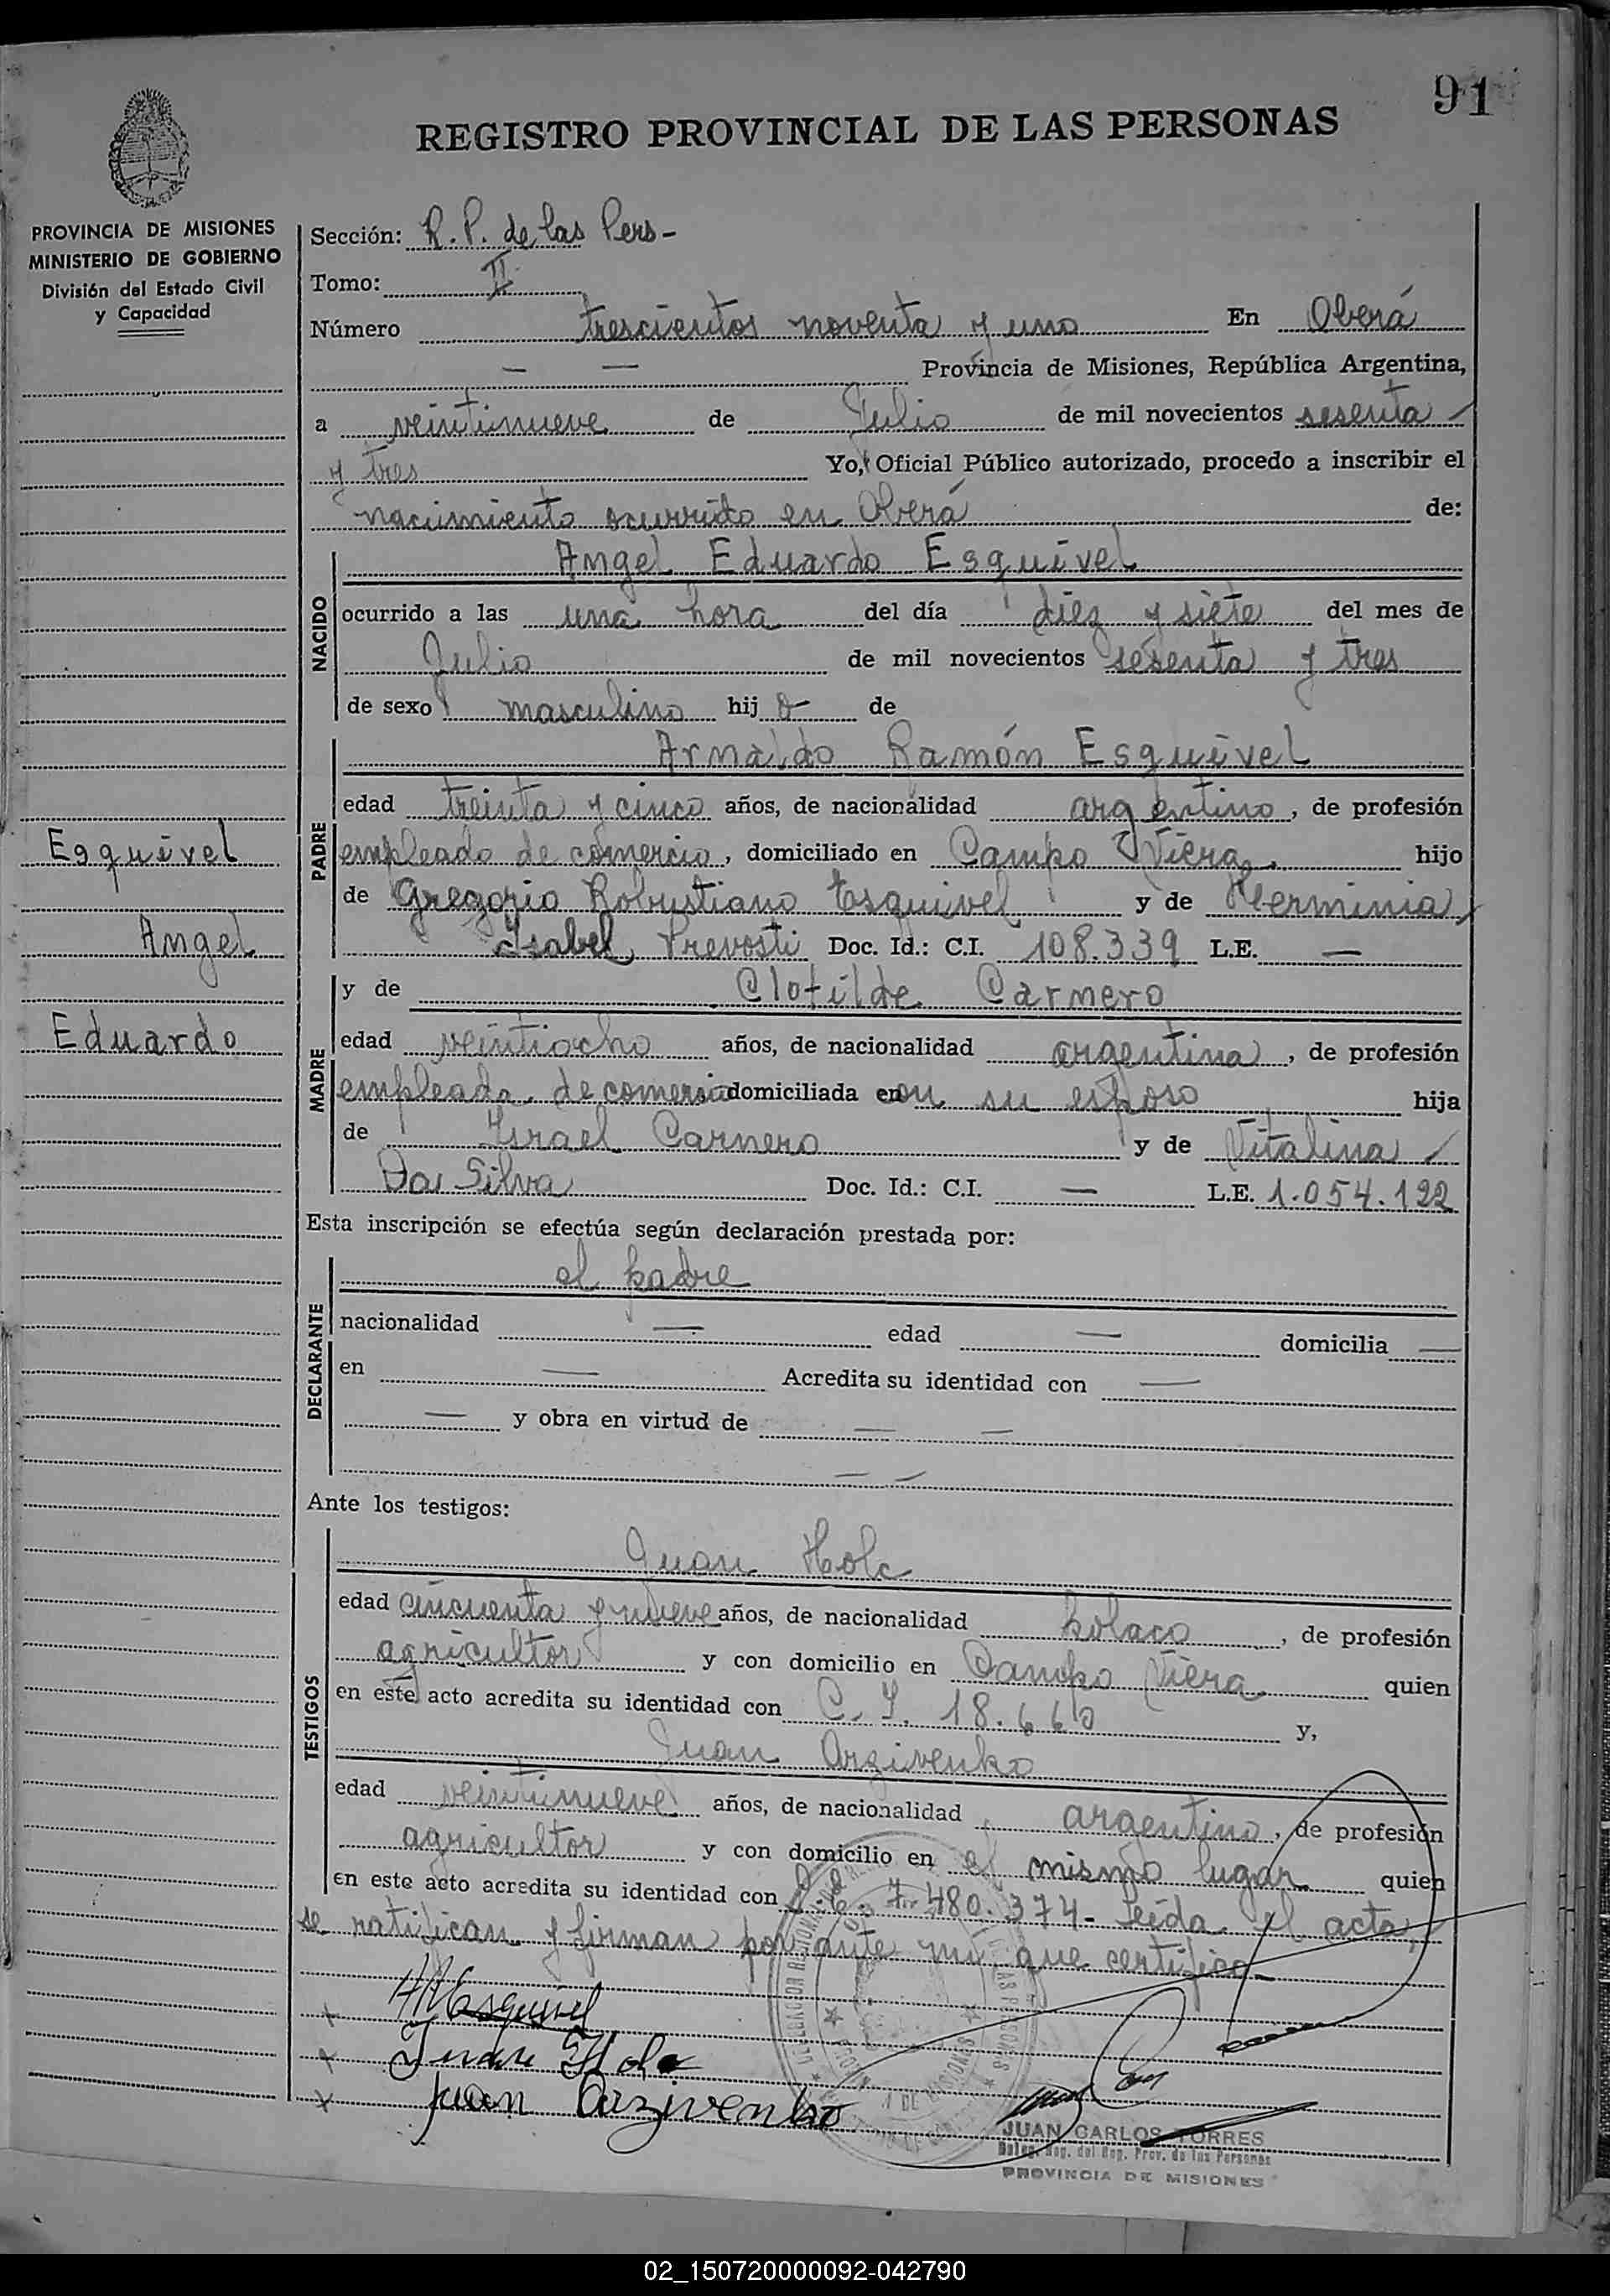 91
REGISTRO PROVINCIAL DE LAS PERSONAS
PROVINCIA DE MISIONES
MINISTERIO DE GOBIERNO
División del Estado Civil
y Capacidad
Esquivel
Angel
Eduardo
Sección: R. P. de las Pers-
Tomo: II
Número trescientos noventa y uno En Oberá
— — Provincia de Misiones, República Argentina,
a veintinueve de Julio de mil novecientos sesenta
y tres Yo, Oficial Público autorizado, procedo a inscribir el
nacimiento ocurrido en Oberá de:
NACIDO
Angel Eduardo Esquivel
ocurrido a las una hora del día diez y siete del mes de
Julio de mil novecientos sesenta y tres
de sexo masculino hij o de
PADRE
Arnaldo Ramón Esquivel
edad treinta y cinco años, de nacionalidad argentino, de profesión
empleado de comercio, domiciliado en Campo Viera, hijo
de Gregorio Robustiano Esquivel y de Herminia
Isabel Prevosti Doc. Id.: C.I. 108.339 L.E. —
MADRE
y de Clotilde Carnero
edad veintiocho años, de nacionalidad argentina, de profesión
empleada de comercio domiciliada en con su esposo hija
de Israel Carnero y de Vitalina
Da Silva Doc. Id.: C.I. — L.E. 1.054.122
Esta inscripción se efectúa según declaración prestada por:
DECLARANTE
el padre
nacionalidad — edad — domicilia —
en — Acredita su identidad con —
— y obra en virtud de — —
— —
Ante los testigos:
TESTIGOS
Juan Holc
edad cincuenta y nueve años, de nacionalidad polaco, de profesión
agricultor y con domicilio en Campo Viera quien
en este acto acredita su identidad con C. I. 18.660 y,
Juan Arzivenko
edad veintinueve años, de nacionalidad argentino, de profesión
agricultor y con domicilio en el mismo lugar quien
en este acto acredita su identidad con L.E. 7.480.374- Leída el acta,
se ratifican y firman por ante mi que certifico-
x AREsquivel
x Juan Holc
x Juan Arzivenko
JUAN CARLOS TORRES
Deleg. Reg. del Reg. Prov. de las Personas
PROVINCIA DE MISIONES
02_150720000092-042790